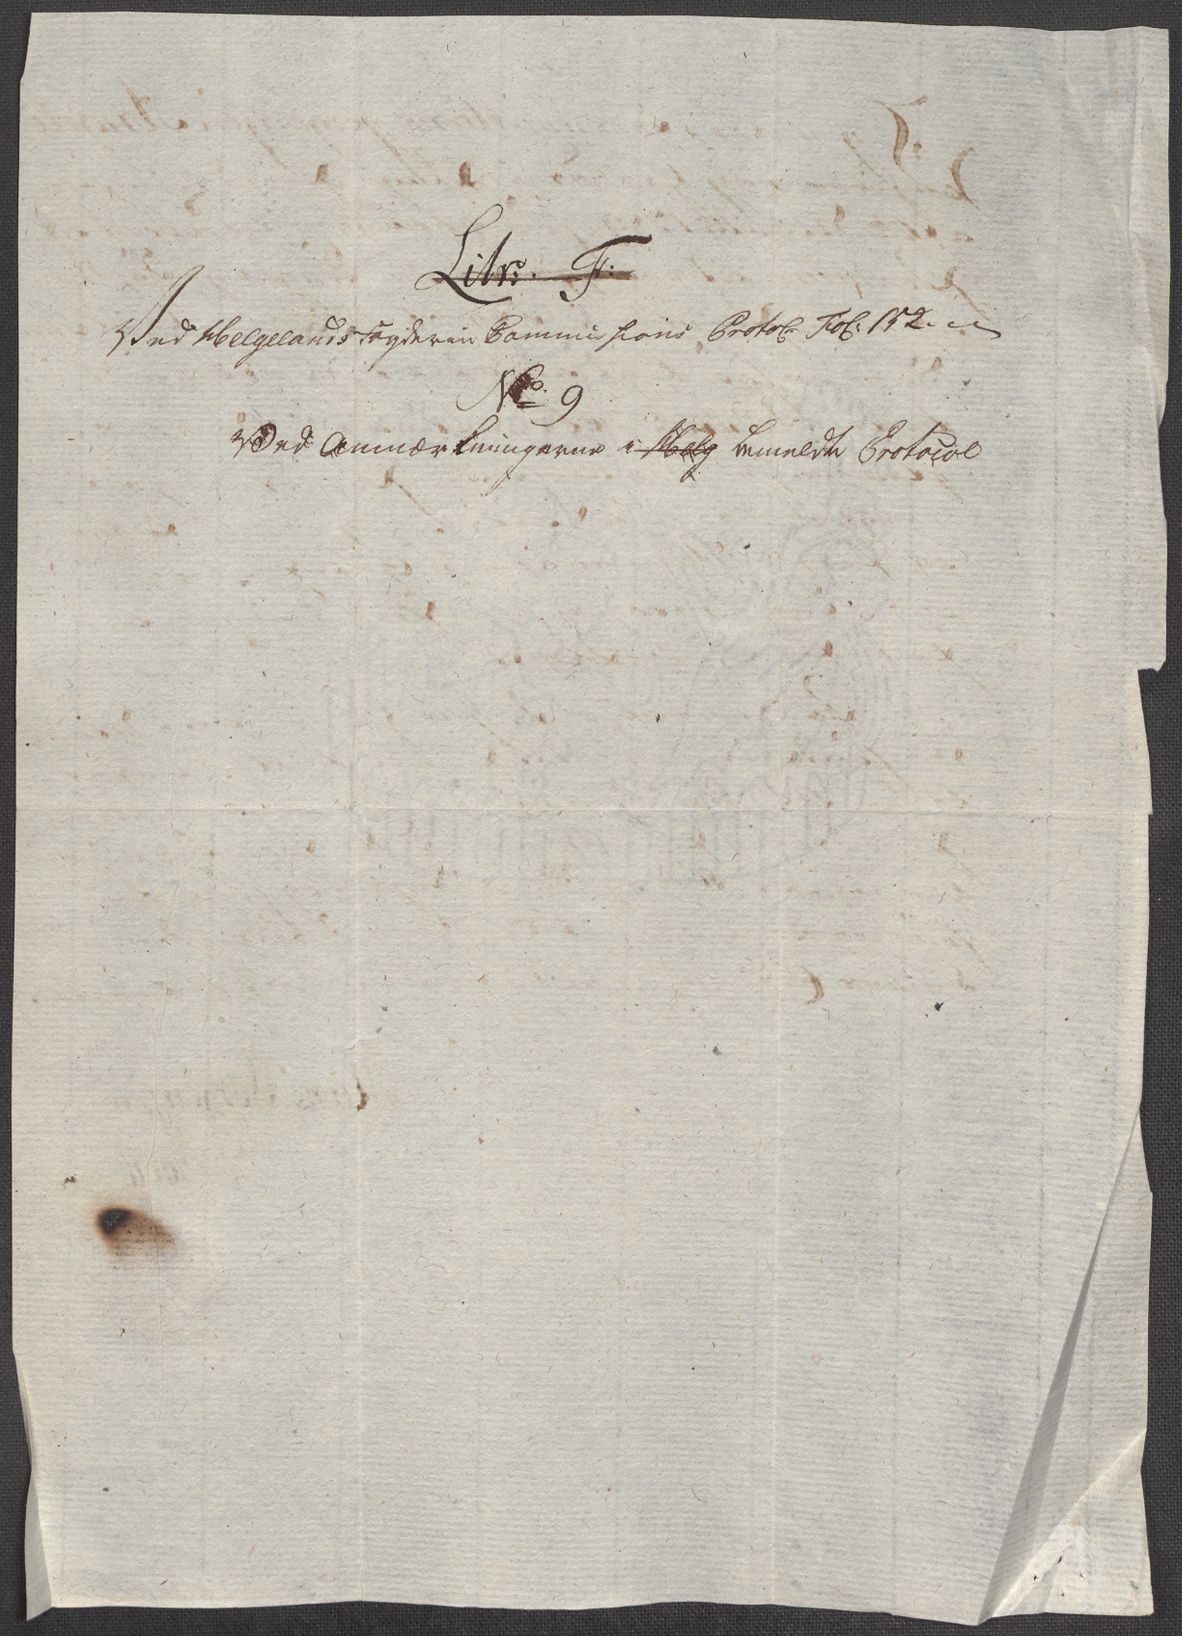 Litr: F:
Ved Helgelands Fogderies Commissions Protoc: Fol: 152.
No. 9
Ved Anmærkningerne i Helg bemeldte Protocol